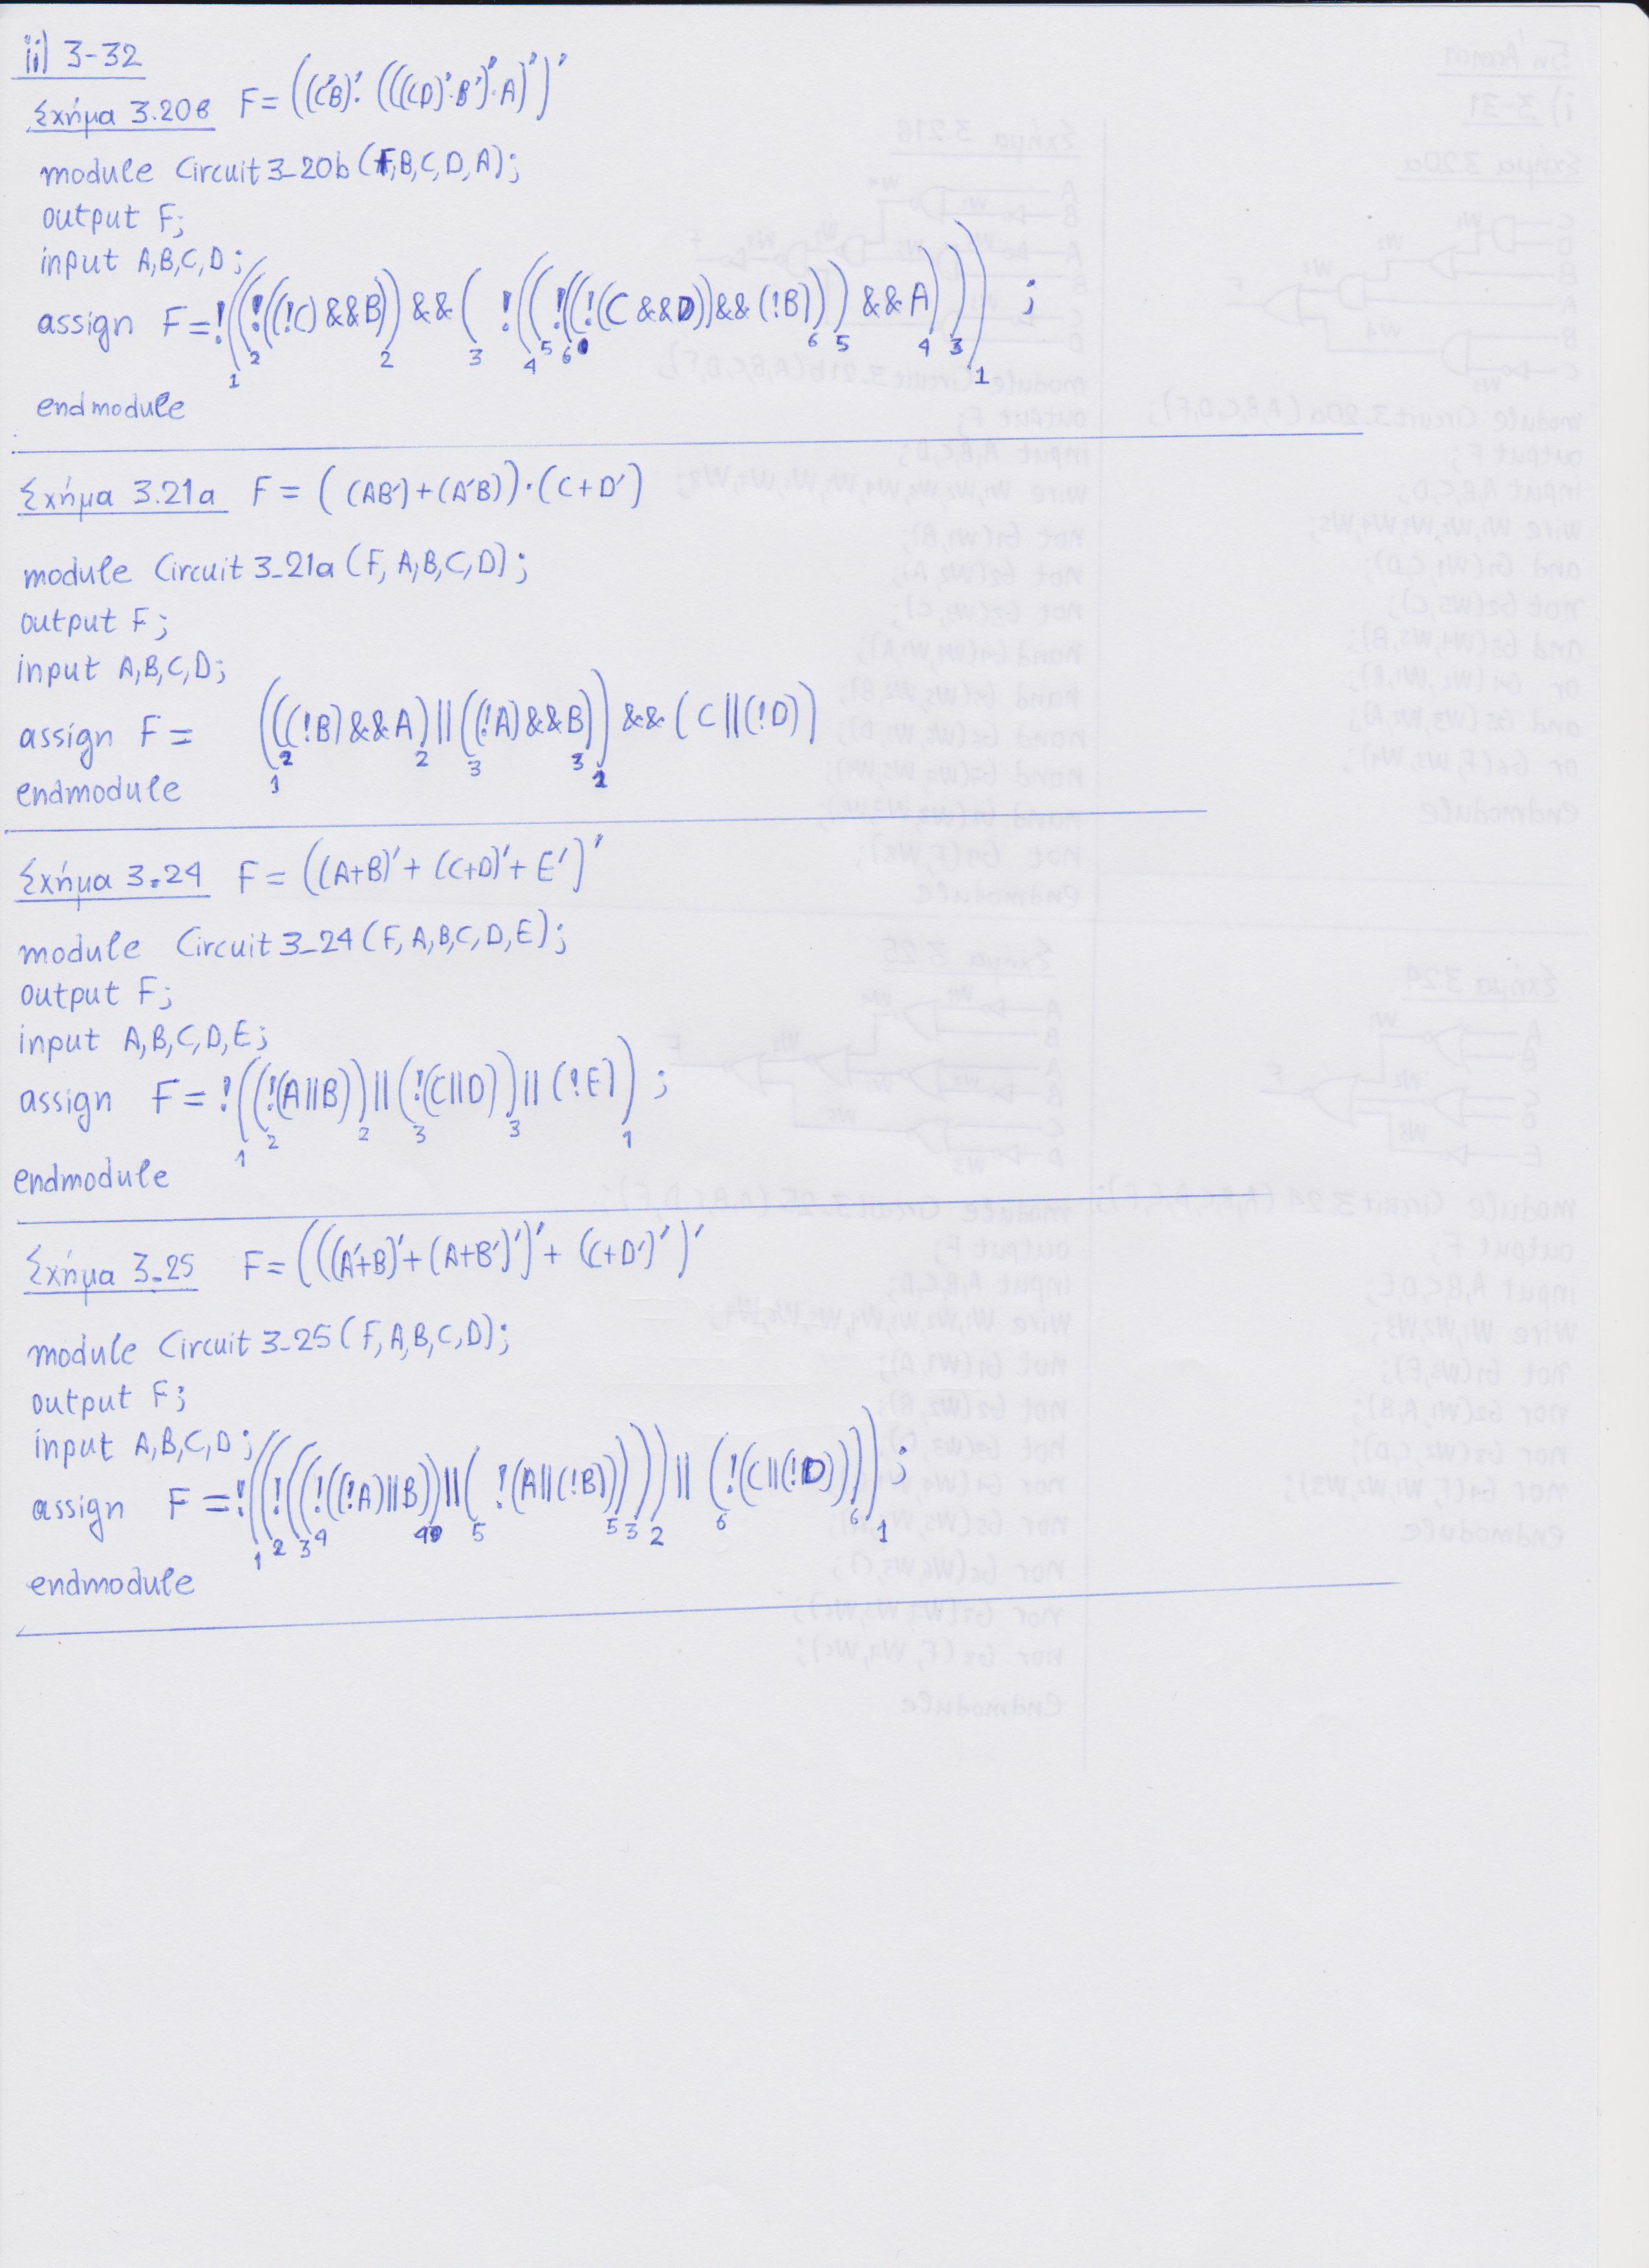 ii) 3-32
Σχήμα 3.20β F = ((C'B)'.(((CD)'.B')'.A)')'
module Circuit 3_20b (F,B,C,D,A);
output F;
input A,B,C,D;
assign F=!((!((!C)&&B))&&( !((!((!(C&&D))&&(!B)))&&A))) ;
1 2 2 3 4 5 6 6 5 4 3 1
endmodule
Σχήμα 3.21a F = ((AB')+(A'B)).(C+D')
module Circuit 3_21a (F, A,B,C,D);
output F;
input A,B,C,D;
assign F = (((!B)&&A)||((!A)&&B))&&(C||(!D))
1 2 2 3 3 1
endmodule
Σχήμα 3.24 F = ((A+B)'+(C+D)'+E')'
module Circuit 3_24 (F, A,B,C,D,E);
output F;
input A,B,C,D,E;
assign F = !((!(A||B))||(!(C||D))||(!E)) ;
1 2 2 3 3 1
endmodule
Σχήμα 3.25 F = (((A'+B)'+(A+B')')'+ (C+D')')'
module Circuit 3_25 (F,A,B,C,D);
output F;
input A,B,C,D;
assign F =!((!((!((!A)||B))||( !(A||(!B)))))||(!(C||(!D))));
1 2 3 4 4 5 5 3 2 6 6 1
endmodule